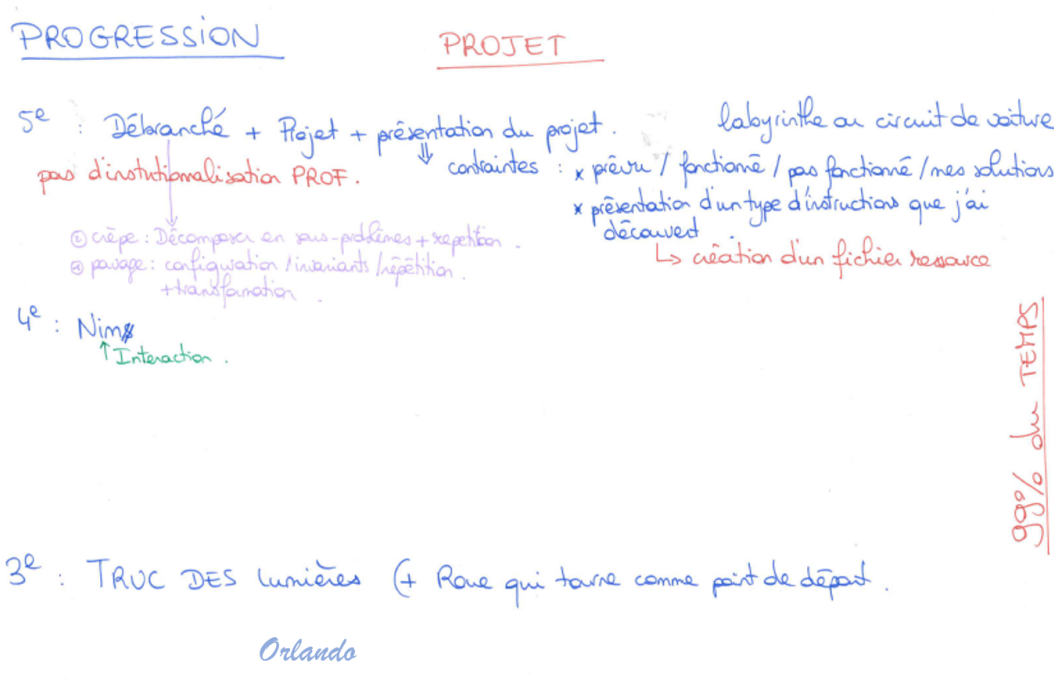 PROGRESSION PROJET
5e : Débranché + Projet + présentation du projet. labyrinthe ou circuit de voiture
pas d'institutionnalisation PROF. contraintes : x prévu / fonctionné / pas fonctionné / mes solutions
x présentation d'un type d'instructions que j'ai
découvert
↳ création d'un fichier ressource
① crêpe : Décomposer en sous-problèmes + répétition.
② pavage : configuration / invariants / répétition.
+ transformation.
4e : Nim
↑ Interaction.
99% du TEMPS
3e : TRUC DES lumières (+ Roue qui tourne comme point de départ.
Orlando